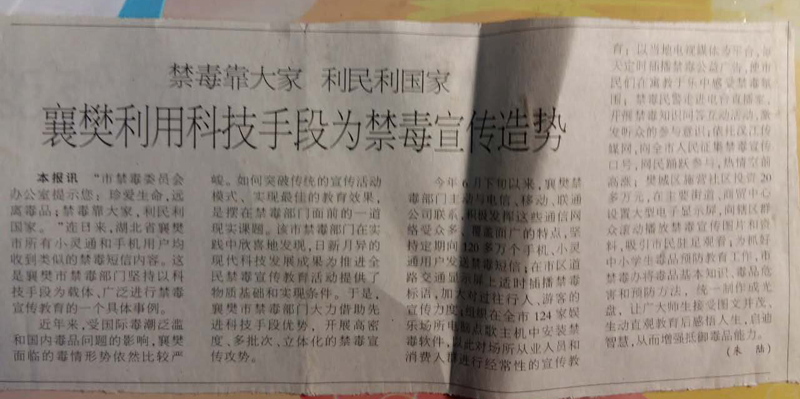 禁毒靠大家 利民利国家
襄樊利用科技手段为禁毒宣传造势
本报讯 “市禁毒委员会
办公室提示您：珍爱生命，远
离毒品；禁毒靠大家，利民利
国家。”连日来，湖北省襄樊
市所有小灵通和手机用户均
收到类似的禁毒短信内容。这
是襄樊市禁毒部门坚持以科
技手段为载体、广泛进行禁毒
宣传教育的一个具体事例。
近年来，受国际毒潮泛滥
和国内毒品问题的影响，襄樊
面临的毒情形势依然比较严
峻。如何突破传统的宣传活动
模式、实现最佳的教育效果，
是摆在禁毒部门面前的一道
现实课题。该市禁毒部门在实
践中欣喜地发现，日新月异的
现代科技发展成果为推进全
民禁毒宣传教育活动提供了
物质基础和实现条件。于是，
襄樊市禁毒部门大力借助先
进科技手段优势，开展高密
度、多批次、立体化的禁毒宣
传攻势。
今年6月下旬以来，襄樊禁
毒部门主动与电信、移动、联通
公司联系，积极发挥这些通信网
络受众多、覆盖面广的特点，坚
持定期向120多万个手机、小灵
通用户发送禁毒短信；在市区道
路交通显示屏上适时插播禁毒
标语，加大对过往行人、游客的
宣传力度；组织在全市124家娱
乐场所电脑点歌主机中安装禁
毒软件，以此对场所从业人员和
消费人群进行经常性的宣传教
育；以当地电视媒体为平台，每
天定时插播禁毒公益广告，使市
民们在寓教于乐中感受禁毒氛
围；禁毒民警走进电台直播室，
开展禁毒知识问答互动活动，激
发听众的参与意识；依托汉江传
媒网，向全市人民征集禁毒宣传
口号，网民踊跃参与，热情空前
高涨；樊城区施营社区投资20
多万元，在主要街道、商贸中心
设置大型电子显示屏，向辖区群
众滚动播放禁毒宣传图片和资
料，吸引市民驻足观看；为抓好
中小学生毒品预防教育工作，市
禁毒办将毒品基本知识、毒品危
害和预防方法，统一制作成光
盘，让广大师生接受图文并茂、
生动直观教育后感悟人生，启迪
智慧，从而增强抵御毒品能力。
（朱 陆）